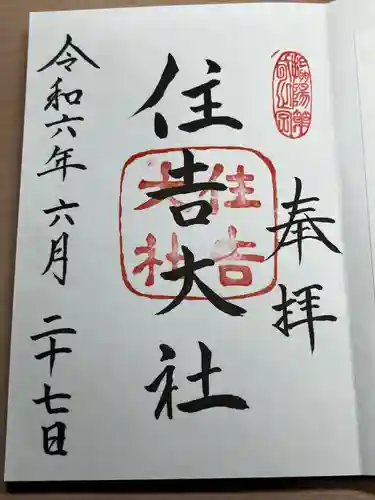 奉拝
住吉大社
住吉
大社
令和六年六月二十七日